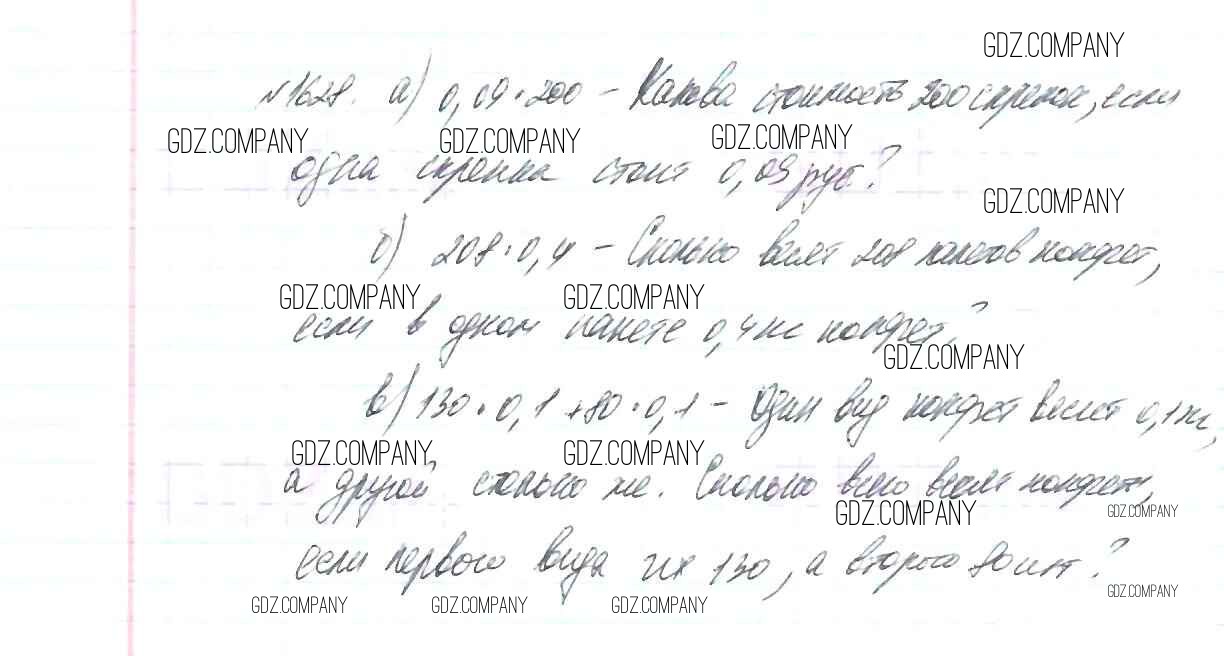 GDZ.COMPANY
№1628. а) 0,09·200 – Какова стоимость 200 скрепок, если
GDZ.COMPANY GDZ.COMPANY GDZ.COMPANY
одна скрепка стоит 0,09 руб.?
GDZ.COMPANY
б) 208·0,4 – Сколько весят 208 пакетов конфет,
GDZ.COMPANY GDZ.COMPANY
если в одном пакете 0,4 кг конфет?
GDZ.COMPANY
в) 130·0,1+80·0,1 – Один вид конфет весит 0,1 кг,
GDZ.COMPANY GDZ.COMPANY
а другой столько же. Сколько всего весят конфеты,
GDZ.COMPANY GDZ.COMPANY
если первого вида их 130, а второго 80 шт?
GDZ.COMPANY
GDZ.COMPANY GDZ.COMPANY GDZ.COMPANY